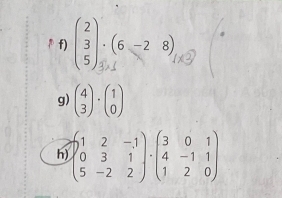 f) (2 3 5) · (6 −2 8)
3×1 1×3
g) (4 3) · (1 0)
h) (1 2 −1
0 3 1
5 −2 2) · (3 0 1
4 −1 1
1 2 0)